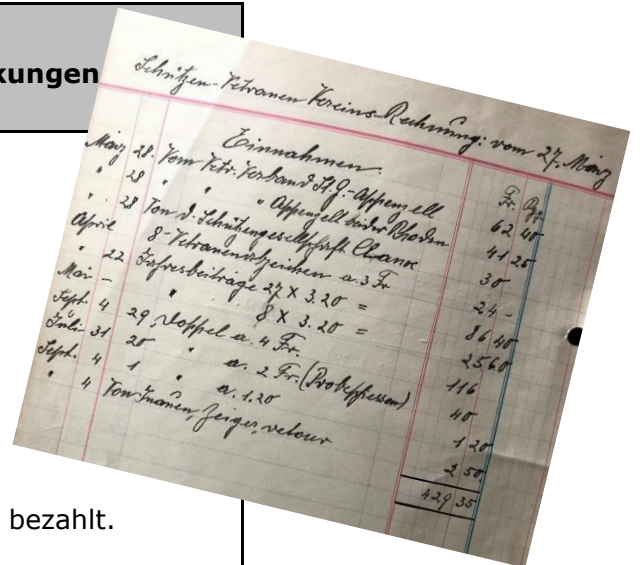 kungen
Schützen-Vetranen Vereins-Rechnung: vom 27. März
Einnahmen: Fr. Rp.
März 28. Vom Vtr. Verband St. G.-Appenzell 62 40
" 28 " " Appenzell beider Rhoden 41 25
" 28 Von d. Schützengesellschaft Clanx 30
April 8 Vetranenabzeichen a 3 Fr 24 -
" 22 Jahresbeiträge 27 X 3.20 = 86 40
Mai - " 8 X 3.20 = 25 60
Sept. 4 29 Doppel a. 4 Fr. 116
Juli 31 20 " a. 2 Fr. (Probeschiessen) 40
Sept. 4 1 " a. 1.20 1 20
" 4 Von Inauen, Zeiger, retour 2 50
429 35
bezahlt.